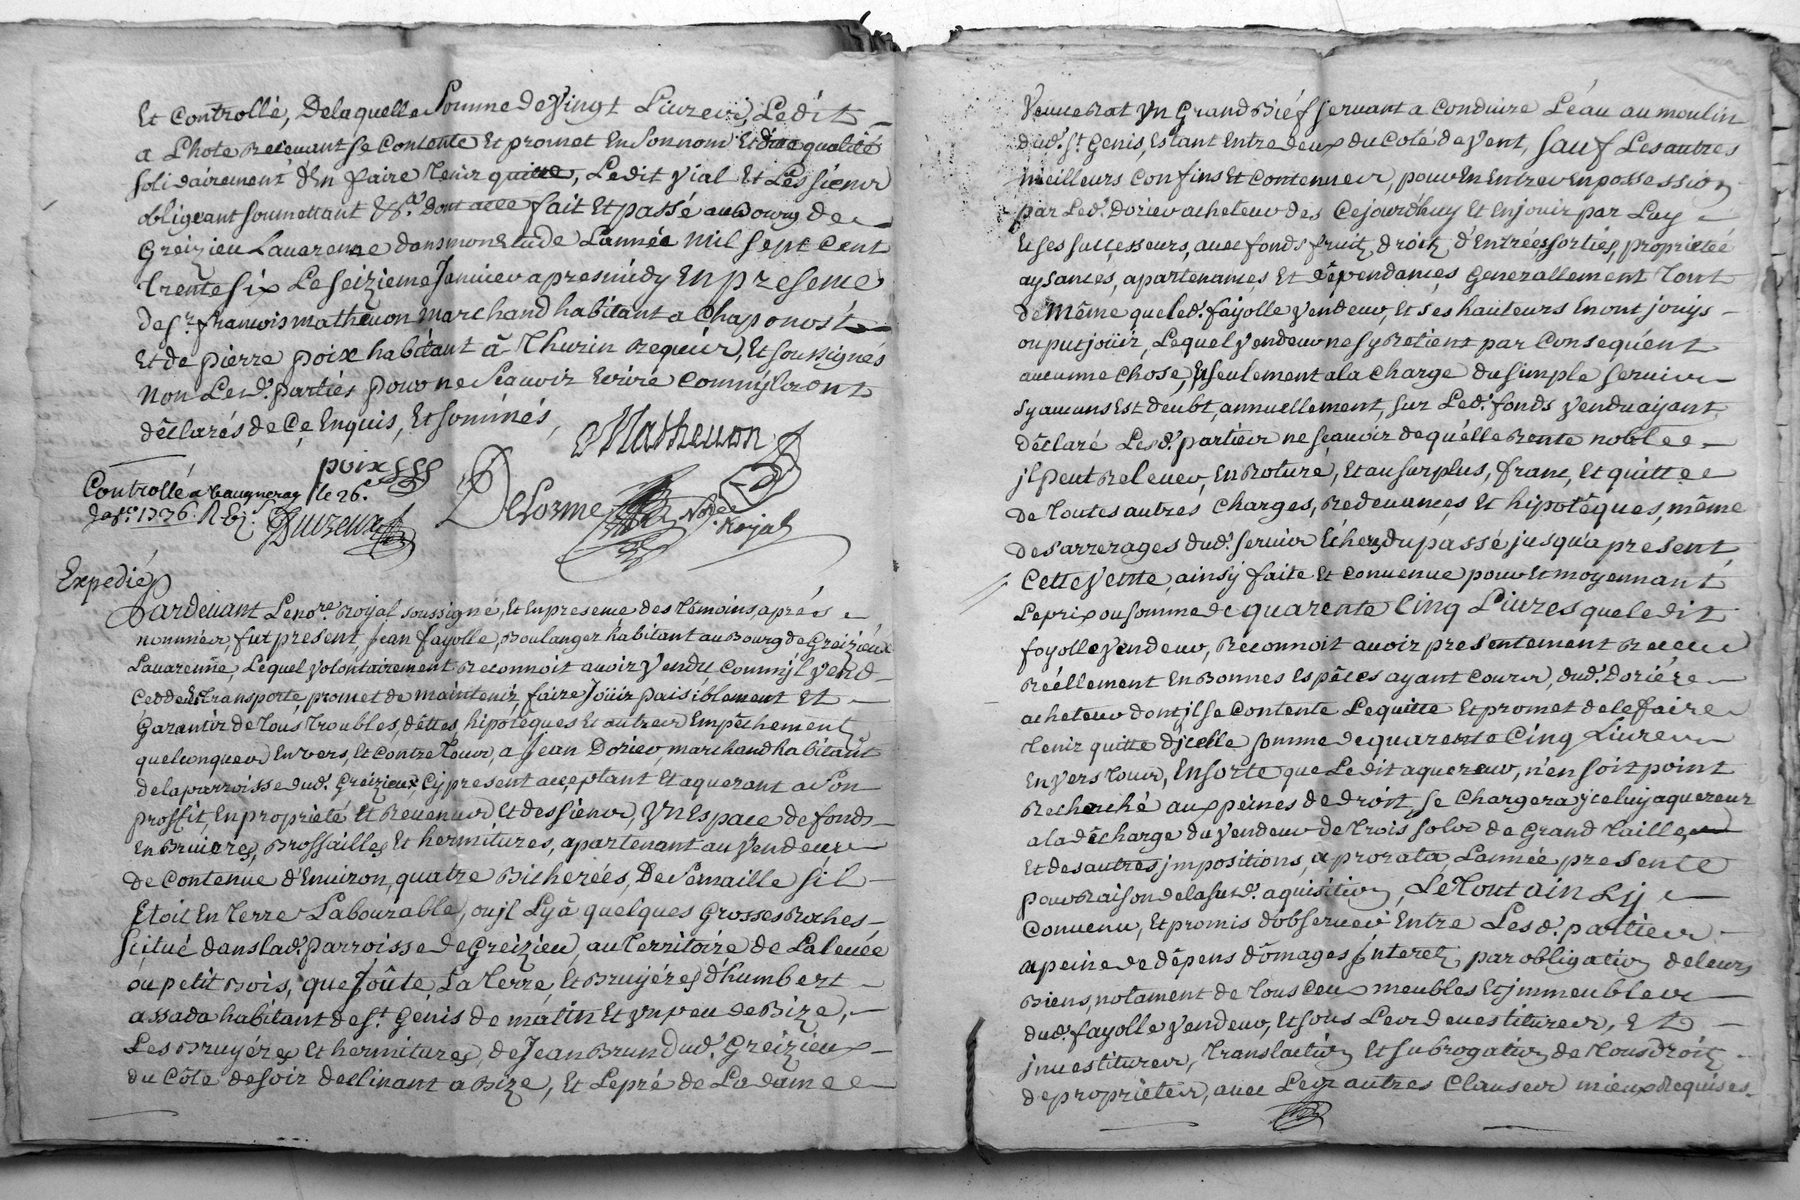 Et Controllé, Delaquelle Somme de Vingt Livres, Ledit
a Lhote Recevant se Contente Et promet En Son nom Et dite qualité
solidairement d'En faire Tenir quitte, Ledit Vial Et Les siens
obligeant soumettant &c.ª dont acte fait Et passé au Bourg de
Greizieu Lavarenne dans mon Etude Lannée Mil Sept Cent
trente six Le Seizieme Janvier apres midy En presence
de Sr. francois matheuon marchand habitant a Chaponost
Et de pierre poix habitant â Thurin Requis, Et soussignés
Non Lesd. parties pour ne Scavoir Ecrire Comm'jlz ont
dêclarés de Ce Enquis, Et sommés,
Matheuon
poix
Controllé a Vaugneray le 26e.
Janv. 1736.
DeLorme Nore. Royal
Expedié
Pardevant Le nore. Royal soussigné, Et En presence des Temoins, après
nommés, fut present, Jean fayolle, Boulanger habitant au Bourg de Greizieux
Lavarenne, Lequel Volontairement Reconnoit avoir Vendu Comm'jl Vend
Cedde Et Transporte, promet de maintenir, faire Joüir paisiblement Et
Garantir de Tous Troubles, dêttes, hipotêques Et autres Empêchement
quelconques Envers, Et Contre Tous, a Jean Dorier, marchand habitant
de la parroisse dud. Greizieux, Cy present acceptant Et aquerant a Son
proffit, En propriété Et Revenus Et des siens, Vn Espace de fonds
En Bruieres, Brossailles Et hermitures, apartenant au Vendeur
de Contenue d'Environ, quatre Bicherées, De Semaille s'il
Etoit En Terre Labourable, ou jl Ly â quelques Grosses Roches
Scitué dans lad. Parroisse de Greizieu, au Territoire de La levée
ou petit Bois, que Joûte, La Terre, Et Bruyéres d'humbert
assada habitant de St. Genis de matin Et Vn peu de Bize,
Les Bruyéres Et hermitures, de Jean Brun dud. Greizieux
du Côté de soir declinant a Bize, Et Le pré de La dâme
Veuve Rat Vn Grand Bief servant a Conduire L'éau au moulin
dud. St. Genis, Estant Entre deux du Coté de Vent, Sauf Les autres
meilleurs Confins Et Contenues, pour En Entrer En possession
par Led. Dorier acheteur des Cejourdhuy Et En jouir par Luy
Et ses successeurs, avec fonds fruitz droitz d'Entrées, sorties, proprietée
aysances, apartenances Et dêpendances Generallement Tout
de Même que led. fayolle Vendeur, Et ses hauteurs En ont jouys
ou put joüir, Lequel Vendeur ne sy Retient par Consequént
aucunne Chose, Et seulement a la Charge du Simple Servis
Sy aucuns Est deubt, annuellement, Sur Led. fonds Vendu ayant
dêclaré Lesd. parties ne scavoir de quélle Rente noble
jl peut Relever, En Roture, Et au surplus, franc, Et quitte
de Toutes autres Charges, Redevances, Et hipotêques, même
des arrerages dud. servis Echeus du passé jusqu'a present
Cette Vente, ainsy faite Et Convenue pour Et moyennant
Le prix ou Somme de quarente Cinq Livres que ledit
fayolle Vendeur, Reconnoit avoir presentement Receu
Réellement En Bonnes Espêces ayant Cours, dud. Doriére
acheteur dont jl se Contente Le quitte Et promet de le faire
Tenir quitte d'jcelle Somme de quarente Cinq Livres
Envers Tous, Ensorte que Ledit aquereur, n'en soit point
Recherché aux peines de droit, Se Chargera jceluy aquereur
a la dêcharge du Vendeur de Trois solz de Grand Taille,
Et des autres jmpositions, a prorata, Lannée presente
pour Raison de la sud. aquisition, Le Tout ainsy
Convenu, Et promis d'observer Entre Lesd. parties
a peine de dêpens dômages Interetz, par obligation de leurs
Biens, notament de Tous Ceux meubles Et jmmeubles
dud. fayolle Vendeur, Et sous Les devestitures, Et
jnvestitures, Translation Et subrogation de Tous droitz
de proprieter, avec Les autres Clauses mieux Requises.